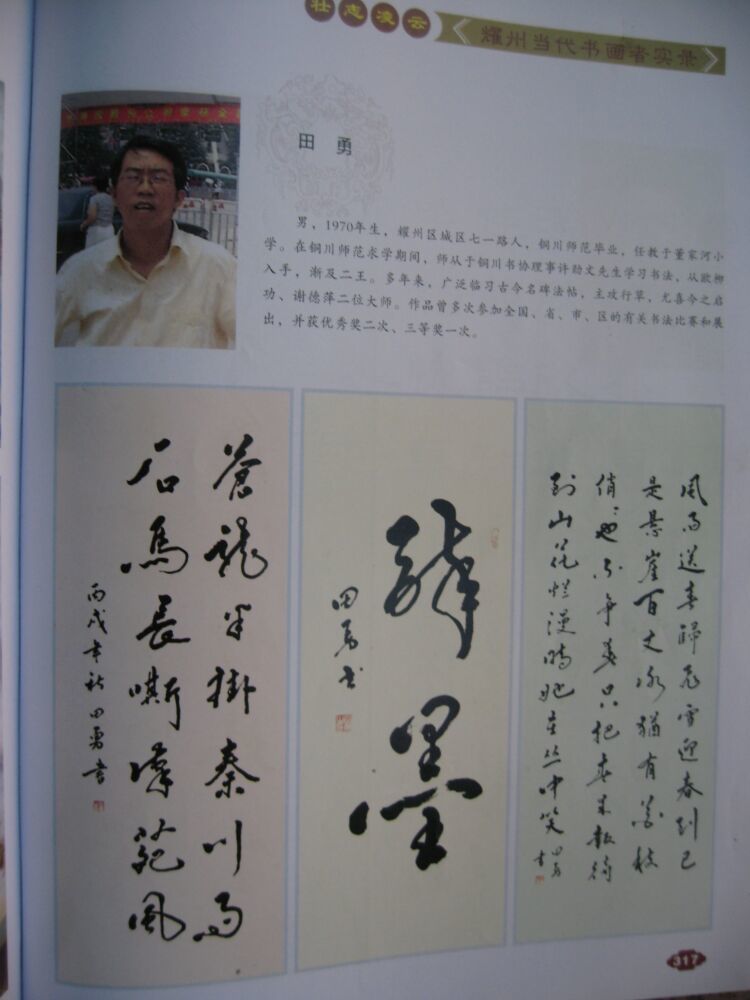 壮志凌云
耀州当代书画者实录
田 勇
男，1970年生，耀州区城区七一路人，铜川师范毕业，任教于董家河小
学。在铜川师范求学期间，师从于铜川书协理事许勋文先生学习书法，从欧柳
入手，渐及二王。多年来，广泛临习古今名碑法帖，主攻行草，尤喜今之启
功、谢德萍二位大师。作品曾多次参加全国、省、市、区的有关书法比赛和展
出，并获优秀奖二次、三等奖一次。
蒼龍半掛秦川雨
石馬長嘶漢苑風
丙戌年秋田勇書
醉墨
田勇书
風雨送春歸飛雪迎春到已
是悬崖百丈冰猶有花枝
俏〻也不争春只把春来报待
到山花烂漫時她在丛中笑
田勇
书
317